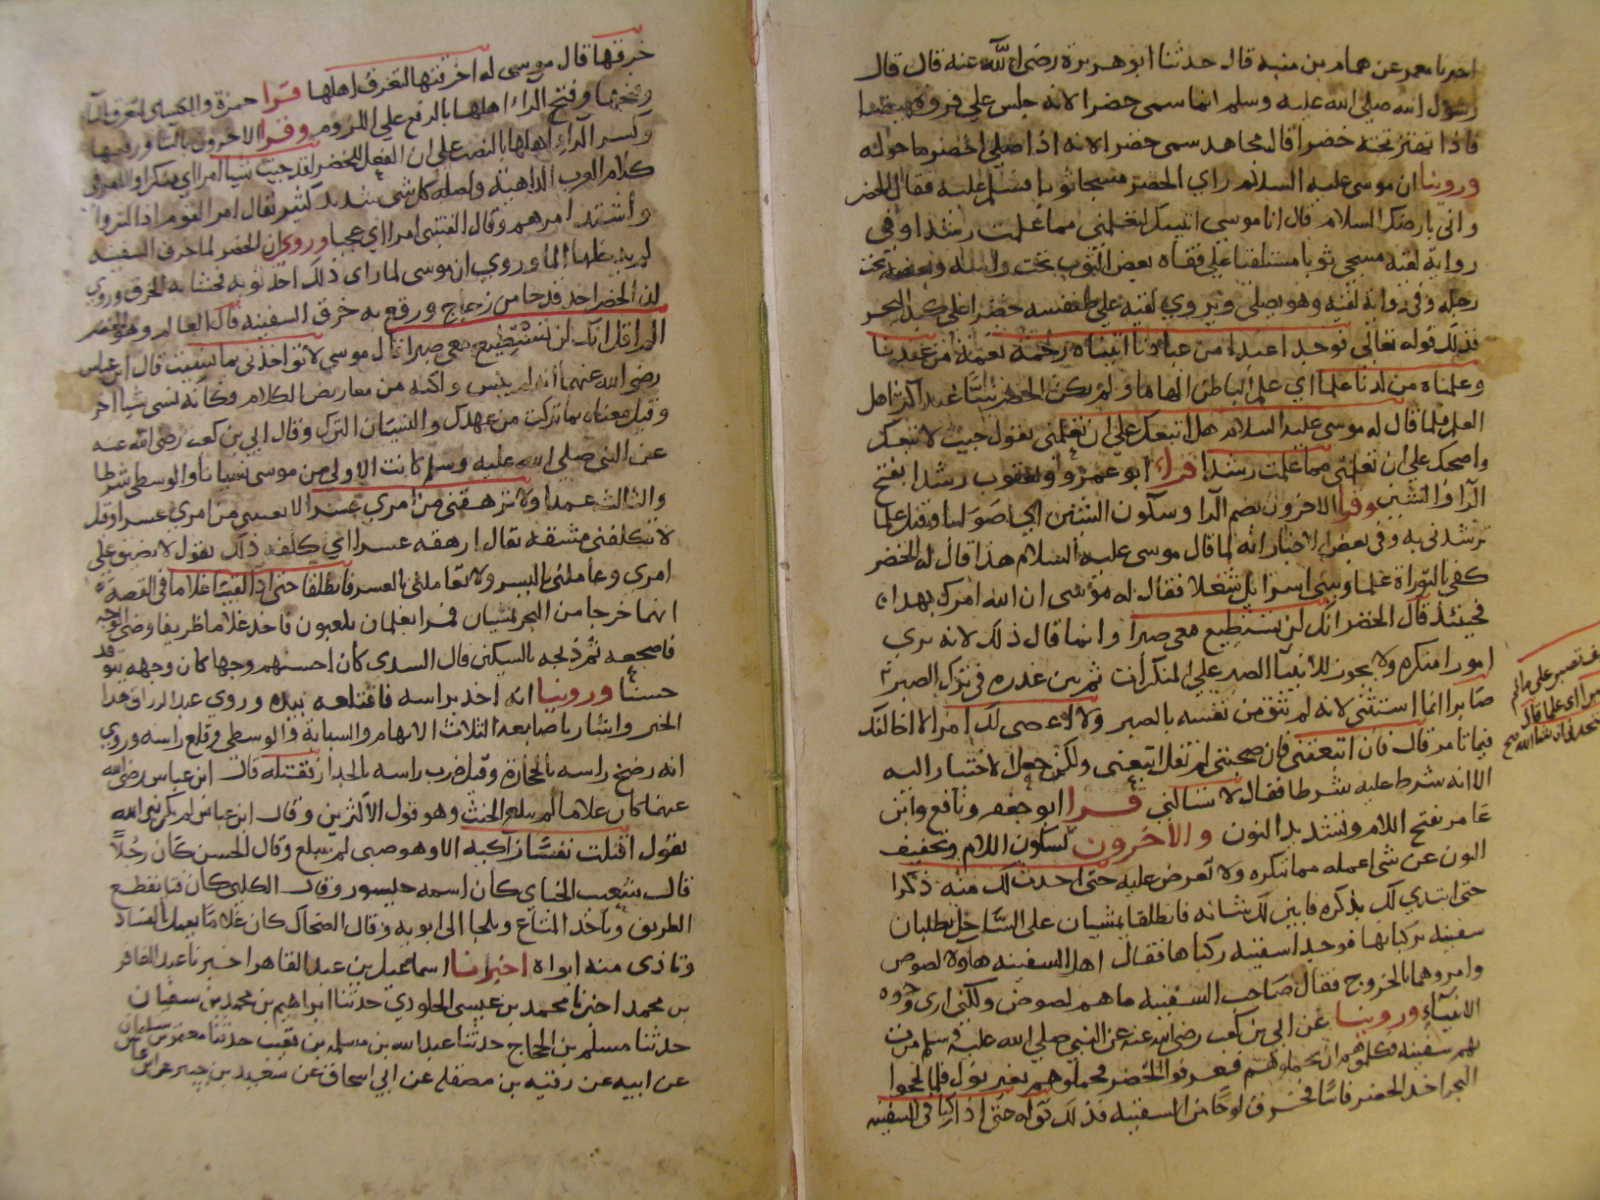 اخبرنا معمر عن همام بن منبه قال حدثنا ابو هريرة رضي الله عنه قال قال
رسول الله صلى الله عليه وسلم انما سمى خضرا لانه جلس على فروة بيضا
فاذا تهتز تحته خضرا قال مجاهد سمى خضرا لانه اذا صلى اخضر ما حوله
وروينا ان موسى عليه السلام راى الخضر مسجا ثوبا فسلم عليه فقال الخضر
وانى بارضك السلام قال انا موسى اتيتك لتعلمنى مما علمت رشدا وفى
رواية لقيه مسجى ثوبا مستلقيا على قفاه بعض الثوب تحت راسه وبعضه تحت
رجله وفى رواية لقيه وهو يصلى ويروى لقيه على طنفسه خضرا على كبد البحر
فذلك قوله تعالى فوجدا عبدا من عبادنا اتيناه رحمة نعمة من عندنا
وعلمناه من لدنا علما اى علم الباطن الهاما ولم يكن الخضر نبيا عند اكثر اهل
العلم فلما قال له موسى عليه السلام هل اتبعك على ان تعلمنى يقول جيت لاتبعك
واصحبك على ان تعلمنى مما علمت رشدا قراء ابو عمرو ويعقوب رشدا بفتح
الرا والشين وقرا الاخرون بضم الرا وسكون الشين اى صوابا وقيل علما
ترشدنى به وفى بعض الاخبار انه لما قال موسى عليه السلام هذا قال له الخضر
كفى بالتوراة علما وببنى اسرايل شغلا فقال له موسى ان الله امرنى بهذا
فحينئذ قال الخضر انك لن تستطيع معى صبرا وانما قال ذلك لانه يرى
امورا منكره ولا يجوز للانبيا الصبر على المنكرات ثم بين عذره فى ترك الصبر
صابرا انما استثنى لانه لم يثق من نفسه بالصبر ولا اعصى لك امرا لا اخالفك
فيما تامر قال فان اتبعتنى فان صحبتنى لم تقل اتبعنى ولكن جعل الاختيار اليه
الا انه شرط عليه شرطا فقال لا تسالنى قرا ابو جعفر ونافع وابن
عامر بفتح اللام وتشديد النون والاخرون بسكون اللام وتخفيف
النون عن شى اعمله مما تنكره ولا تعترض عليه حتى احدث لك منه ذكرا
حتى ابتدى لك بذكره فابين لك شانه فانطلقا يمشيان على الساحل يطلبان
سفينه يركبانها فوجدا سفينه ركباها فقال اهل السفينه هاولا لصوص
وامروهما بالخروج فقال صاحب السفينه ما هم لصوص ولكنى ارى وجوه
الانبياء وروينا عن ابى بن كعب رضى الله عنه عن النبى صلى الله عليه وسلم مرت
بهم سفينه فكلموهم ان يحملوهم فعرفوا الخضر فحملوهم بغير نول فلما لججوا
البحر اخذ الخضر فاسا فخرق لوحا من السفينه فذلك قوله حتى اذا ركبا فى السفينه
تصبر على ما لم
علما قال
ستجدنى ان شا الله صح
خرقها قال موسى له اخرقتها لتغرق اهلها قرا حمزة والكساى ليغرق باليا
وفتحها وفتح الراء اهلها بالرفع على اللزوم وقرا الاخرون بالتا ورفعها
وكسر الراء اهلها بالنصب على ان الفعل للخضر لقد جيت شيا امرا اى منكرا والامر فى
كلام العرب الداهية واصله كل شى شديد كثير يقال امر القوم اذا كثروا
واشتد امرهم وقال القتيبى امرا اى عجبا وروى ان الخضر لما خرق السفينه
لم يدخلها الما وروى ان موسى لما راى ذلك اخذ ثوبه فحشا به الخرق وروى
ان الخضر اخذ قدحا من زجاج ورقع به خرق السفينه قال العالم وهو الخضر
الم اقل انك لن تستطيع معى صبرا قال موسى لا تواخذنى بما نسيت قال ابن عباس
رضى الله عنهما انه لم ينس ولكنه من معاريض الكلام فكانه نسى شيا اخر
وقيل معناه بما تركت من عهدك والنسيان الترك وقال ابى بن كعب رضى الله عنه
عن النبى صلى الله عليه وسلم كانت الاولى من موسى نسيانا والوسطى شرطا
والثالث عمدا ولا ترهقنى من امرى عسرا لا تغشنى من امرى عسرا وقيل
لا تكلفنى مشقه يقال ارهقه عسرا اى كلفه ذلك يقول لا تضيق على
امرى وعاملنى باليسر ولا تعاملنى بالعسر فانطلقا حتى اذا لقيا غلاما فى القصة
انهما خرجا من البحر يمشيان فمرا بغلمان يلعبون فاخذ غلاما ظريفا وضى الوجه
فاضجعه ثم ذبحه بالسكين قال السدى كان احسنهم وجها كان وجهه يتوقد
حسنا وروينا انه اخذ براسه فاقتلعه بيده وروى عبد الرزاق هذا
الخبر واشار باصابعه الثلاث الابهام والسبابة والوسطى وقلع راسه وروى
انه رضخ راسه بالحجارة وقيل ضرب راسه بالجدار فقتله قال ابن عباس رضى الله
عنهما كان غلاما لم يبلغ الحنث وهو قول الاكثرين وقال ابن عباس لم يكن نبى الله
يقول اقتلت نفسا زاكيه الا وهو صبى لم يبلغ وقال الحسن كان رجلا
قال شعيب الجباى كان اسمه حيسور وقال الكلبى كان فتا يقطع
الطريق وياخذ المتاع ويلجا الى ابويه وقال الضحاك كان غلاما يعمل بالفساد
وتاذى منه ابواه اخبرنا اسماعيل بن عبد القاهر اخبرنا عبد الغافر
بن محمد اخبرنا محمد بن عيسى الجلودى حدثنا ابراهيم بن محمد بن سفيان
حدثنا مسلم بن الحجاج حدثنا عبد الله بن مسلمه بن قعنب حدثنا معتمر بن سليمان
عن ابيه عن رقبه بن مصقله عن ابى اسحاق عن سعيد بن جبير عن ابن عباس